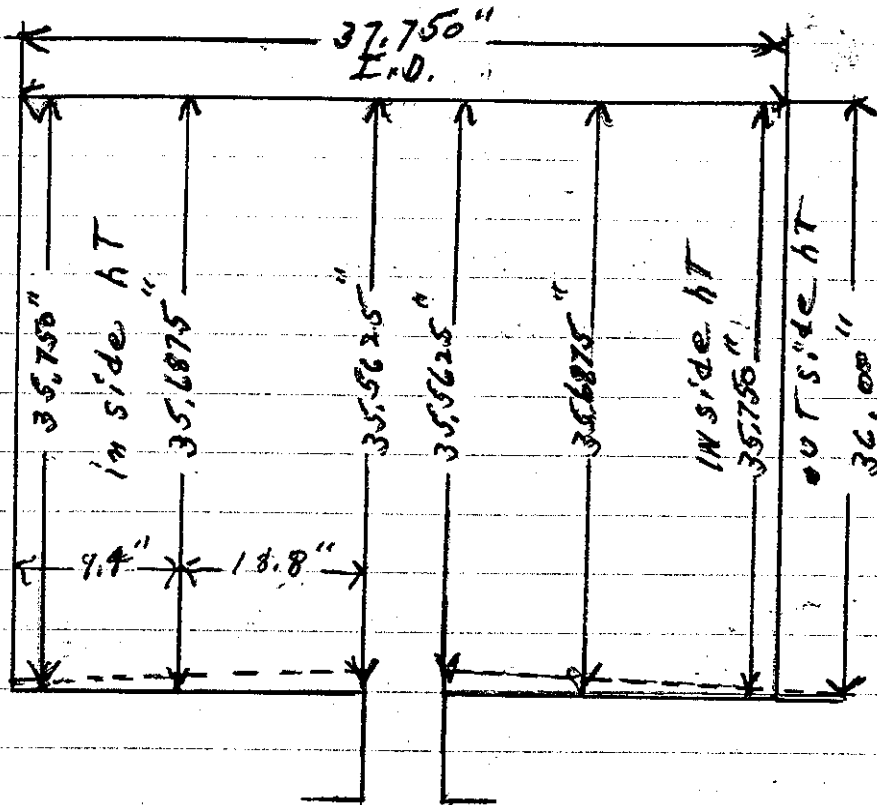 37.750"
I.D.
35.750"
inside hT
35.6875"
35.5625"
35.5625"
35.6875"
INside hT
35.750"
ouTside hT
36.00"
9.4"
18.8"